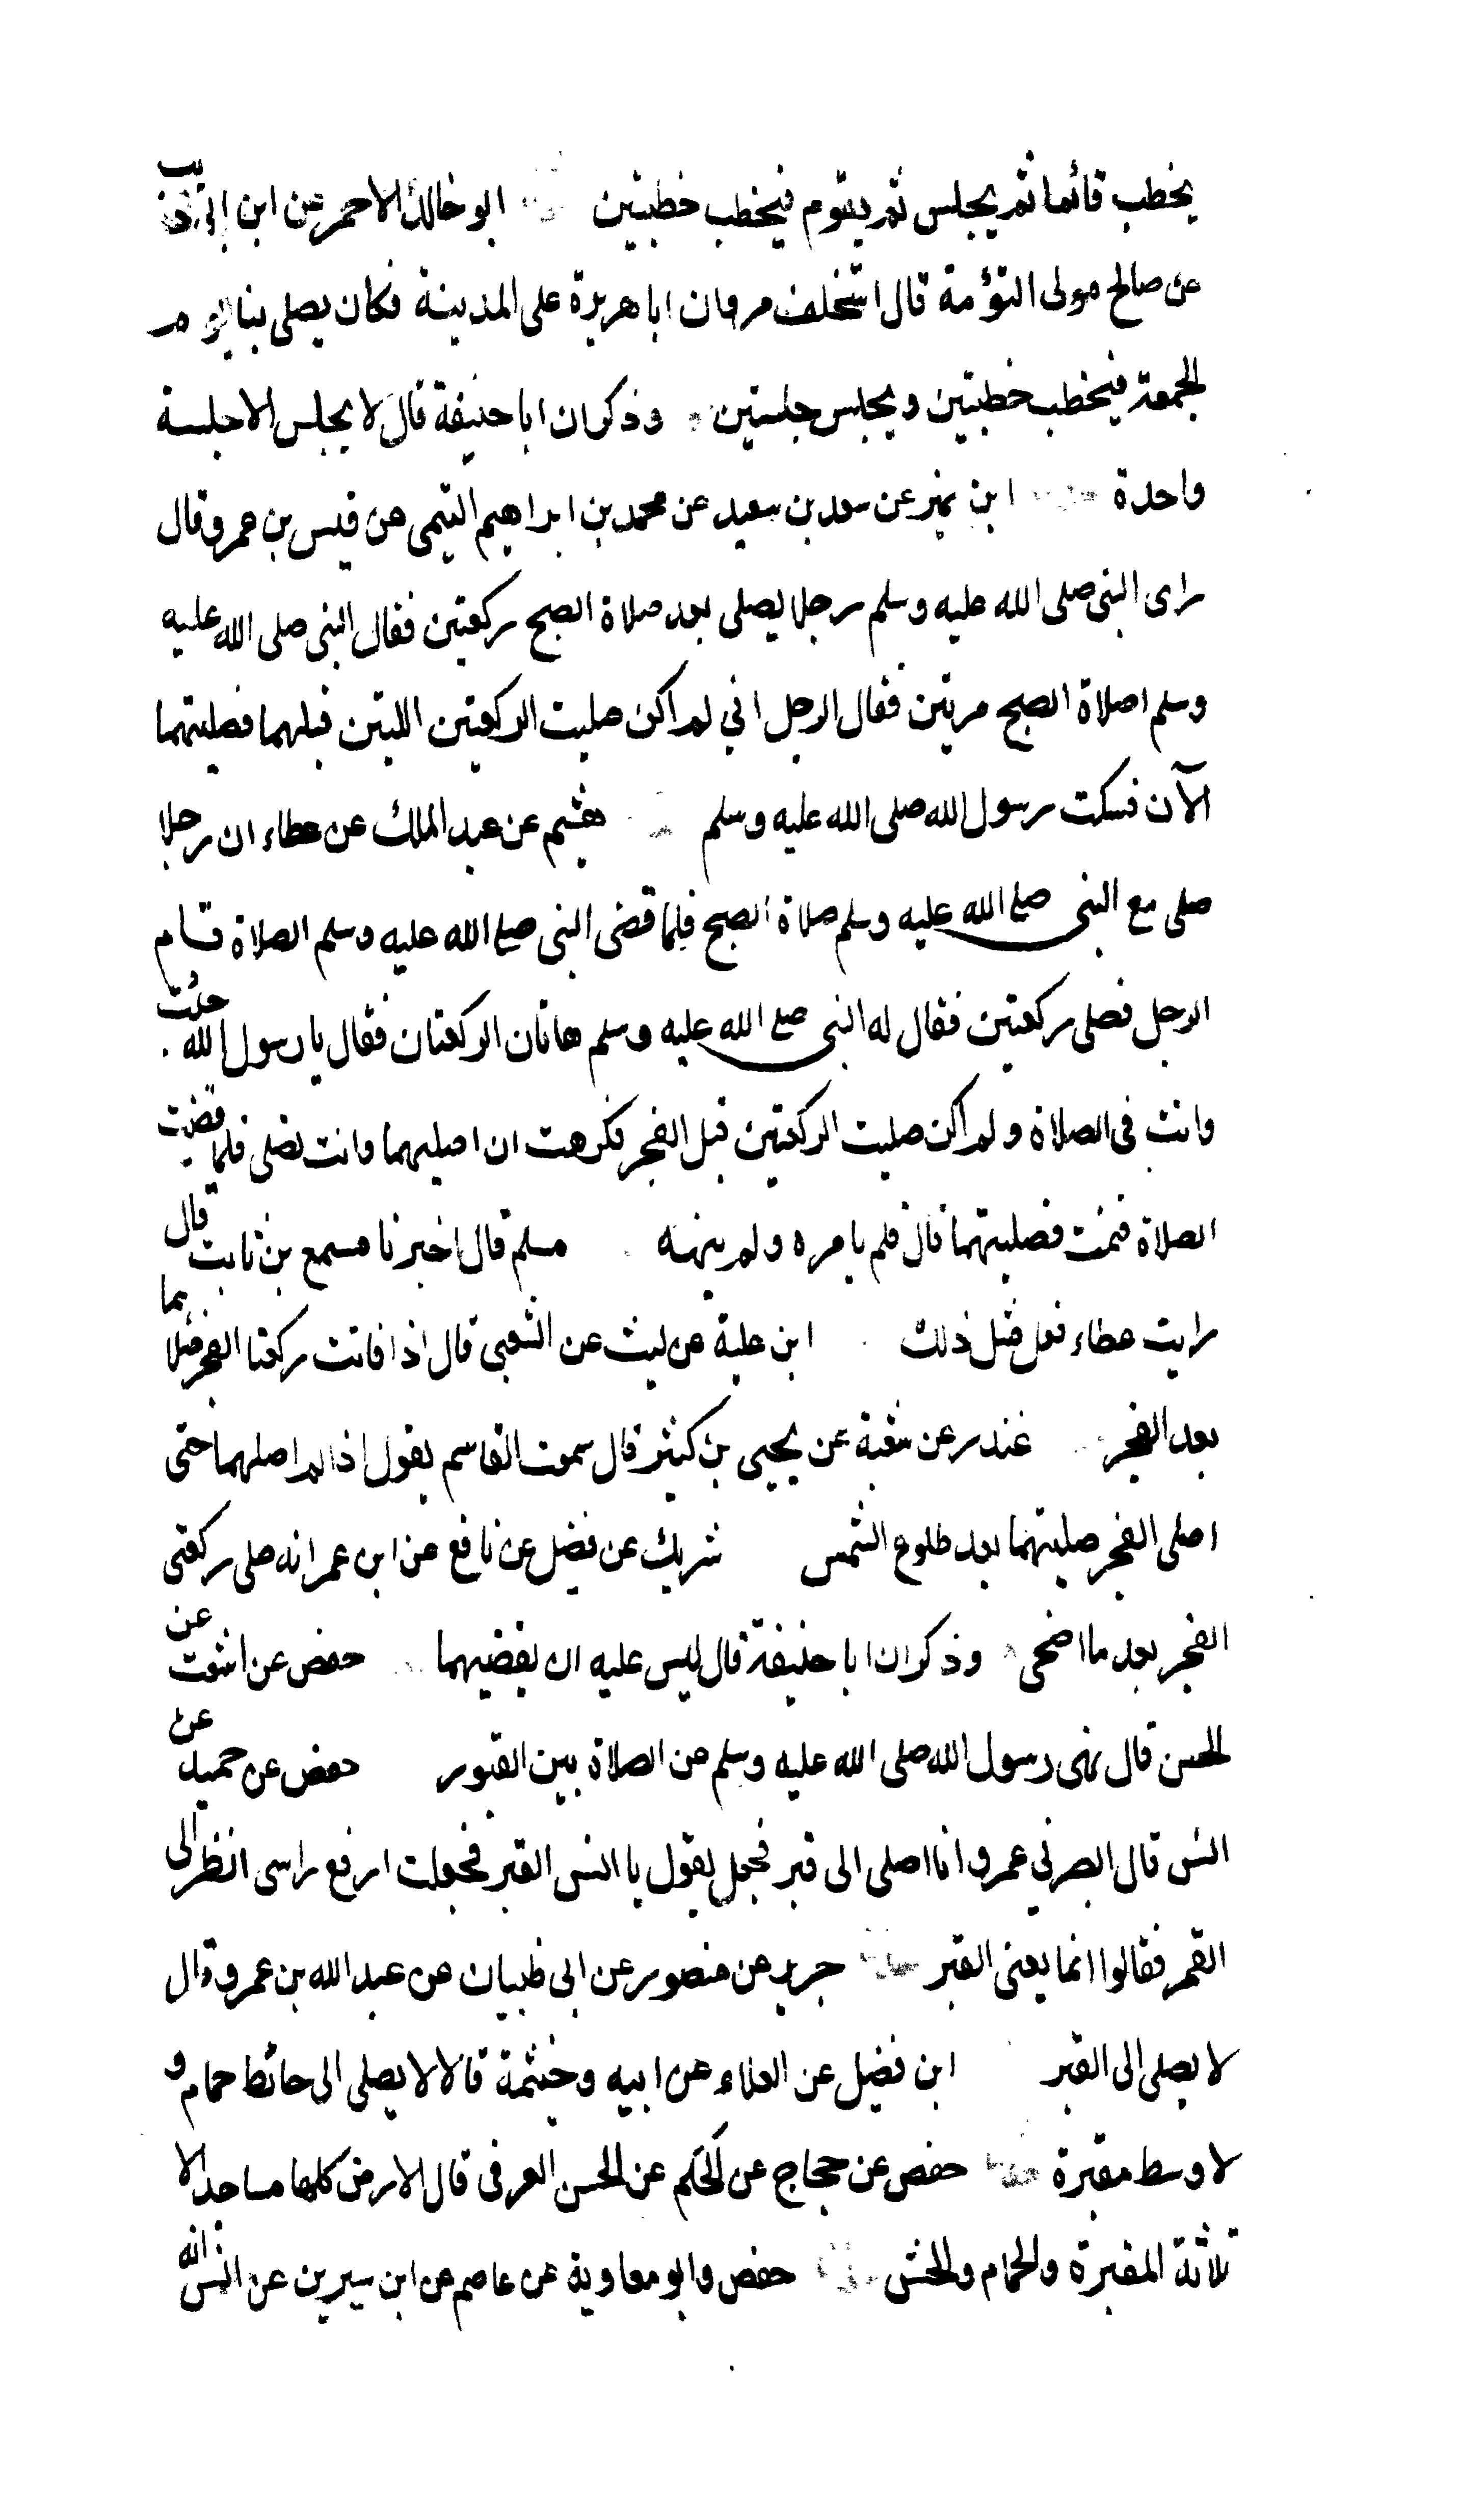 يخطب قائما ثم يجلس ثم يقوم فيخطب خطبتين ابو خالد الاحمر عن ابن ابي ذئب
عن صالح مولى التؤمة قال استخلف مروان ابا هريرة على المدينة فكان يصلي بنا يوم
الجمعة فيخطب خطبتين ويجلس جلستين وذكر ان ابا حنيفة قال لا يجلس الا جلسة
واحدة ابن نمير عن سعد بن سعيد عن محمد بن ابراهيم التيمى عن قيس بن عمرو قال
راى النبى صلى الله عليه وسلم رجلا يصلى بعد صلاة الصبح ركعتين فقال النبى صلى الله عليه
وسلم اصلاة الصبح مرتين فقال الرجل اني لم اكن صليت الركعتين اللتين قبلهما فصليتهما
الآن فسكت رسول الله صلى الله عليه وسلم هشيم عن عبد الملك عن عطاء ان رجلا
صلى مع النبى صلى الله عليه وسلم صلاة الصبح فلما قضى النبى صلى الله عليه وسلم الصلاة قام
الرجل فصلى ركعتين فقال له النبى صلى الله عليه وسلم ما هاتان الركعتان فقال يا رسول الله جئت
وانت فى الصلاة ولم اكن صليت الركعتين قبل الفجر فكرهت ان اصليهما وانت تصلى فلما قضيت
الصلاة قمت فصليتهما قال فلم يامره ولم ينهه مسلم قال اخبرنا مسمع بن ثابت قال
رايت عطاء فعل مثل ذلك ابن علية عن ليث عن الشعبى قال اذا فاتت ركعتا الفجر صلاهما
بعد الفجر غندر عن شعبة عن يحيى بن كثير قال سمعت القاسم يقول اذا لم اصلهما حتى
اصلى الفجر صليتهما بعد طلوع الشمس شريك عن فضيل عن نافع عن ابن عمر انه صلى ركعتى
الفجر بعد ما اضحى وذكر ان ابا حنيفة قال ليس عليه ان يقضيهما حفص عن اشعث عن
الحسن قال نهى رسول الله صلى الله عليه وسلم عن الصلاة بين القبور حفص عن حميد عن
انس قال ابصرني عمر وانا اصلى الى قبر فجعل يقول يا انس القبر فجعلت ارفع راسى انظر الى
القمر فقالوا انما يعنى القبر جرير عن منصور عن ابى ظبيان عن عبد الله بن عمرو قال
لا يصلى الى القبر ابن فضيل عن العلاء عن ابيه وخيثمة قالا لا يصلى الى حائط حمام و
لا وسط مقبرة حفص عن حجاج عن الحكم عن الحسن العرفى قال الارض كلها مساجد الا
ثلاثة المقبرة والحمام والحش حفص وابو معاوية عن عاصم عن ابن سيرين عن انس انه